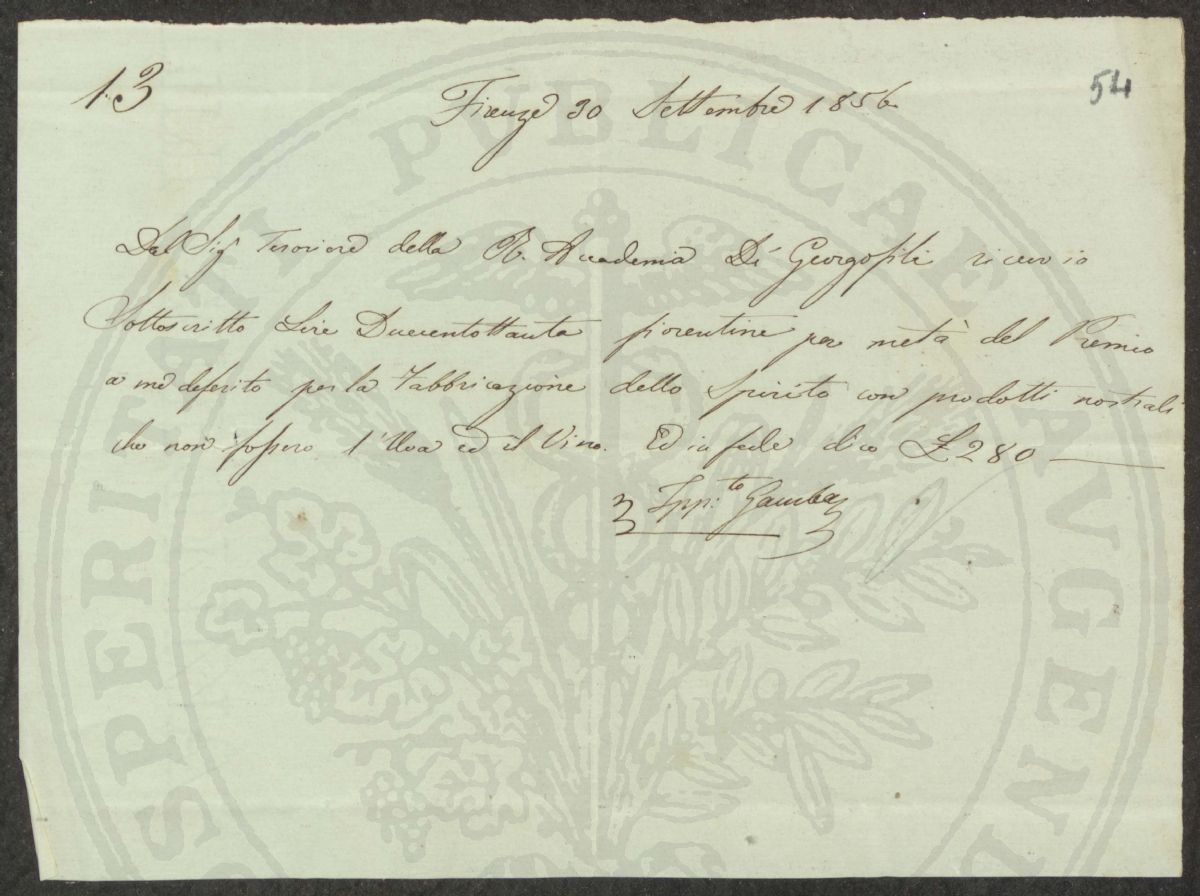 13
54
Firenze 30 Settembre 1856
Dal Sigr Tesoriere della R. Accademia Di Georgofili ricevo io
Sottoscritto Lire Duecentottanta fiorentine per metà del Premio
a me deferito per la Fabbricazione dello Spirito con prodotti nostrali
che non fossero l'Uva ed il Vino. Ed in fede dico £ 280
Ipp:to Gamba
PROSPERITATI PUBLICAE AUGENDAE